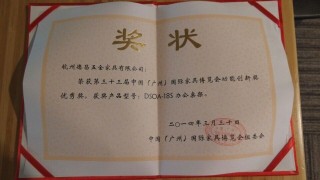 奖状
杭州德昌五金家具有限公司：
荣获第三十三届中国（广州）国际家具博览会功能创新奖
优秀奖。获奖产品型号：DSOA-18S 办公桌架。
二〇一四年三月三十日
中国（广州）国际家具博览会组委会